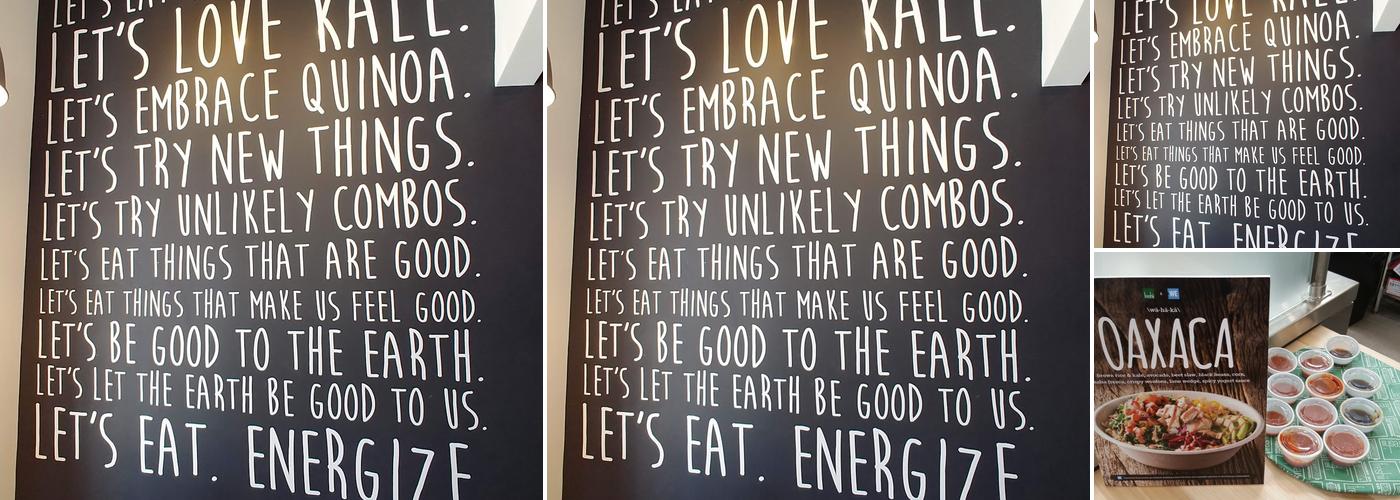 LET'S EAT
LET'S LOVE KALE.
LET'S EMBRACE QUINOA.
LET'S TRY NEW THINGS.
LET'S TRY UNLIKELY COMBOS.
LET'S EAT THINGS THAT ARE GOOD.
LET'S EAT THINGS THAT MAKE US FEEL GOOD.
LET'S BE GOOD TO THE EARTH.
LET'S LET THE EARTH BE GOOD TO US.
LET'S EAT. ENERGIZE
LET'S EAT
LET'S LOVE KALE.
LET'S EMBRACE QUINOA.
LET'S TRY NEW THINGS.
LET'S TRY UNLIKELY COMBOS.
LET'S EAT THINGS THAT ARE GOOD.
LET'S EAT THINGS THAT MAKE US FEEL GOOD.
LET'S BE GOOD TO THE EARTH.
LET'S LET THE EARTH BE GOOD TO US.
LET'S EAT. ENERGIZE
LET'S LOVE KALE.
LET'S EMBRACE QUINOA.
LET'S TRY NEW THINGS.
LET'S TRY UNLIKELY COMBOS.
LET'S EAT THINGS THAT ARE GOOD.
LET'S EAT THINGS THAT MAKE US FEEL GOOD.
LET'S BE GOOD TO THE EARTH.
LET'S LET THE EARTH BE GOOD TO US.
LET'S EAT. ENERGIZE
WE
\wä-hä-kä\
OAXACA
brown rice & kale, avocado, beet slaw, black beans, corn,
salsa fresca, crispy wontons, lime wedge, spicy yogurt sauce